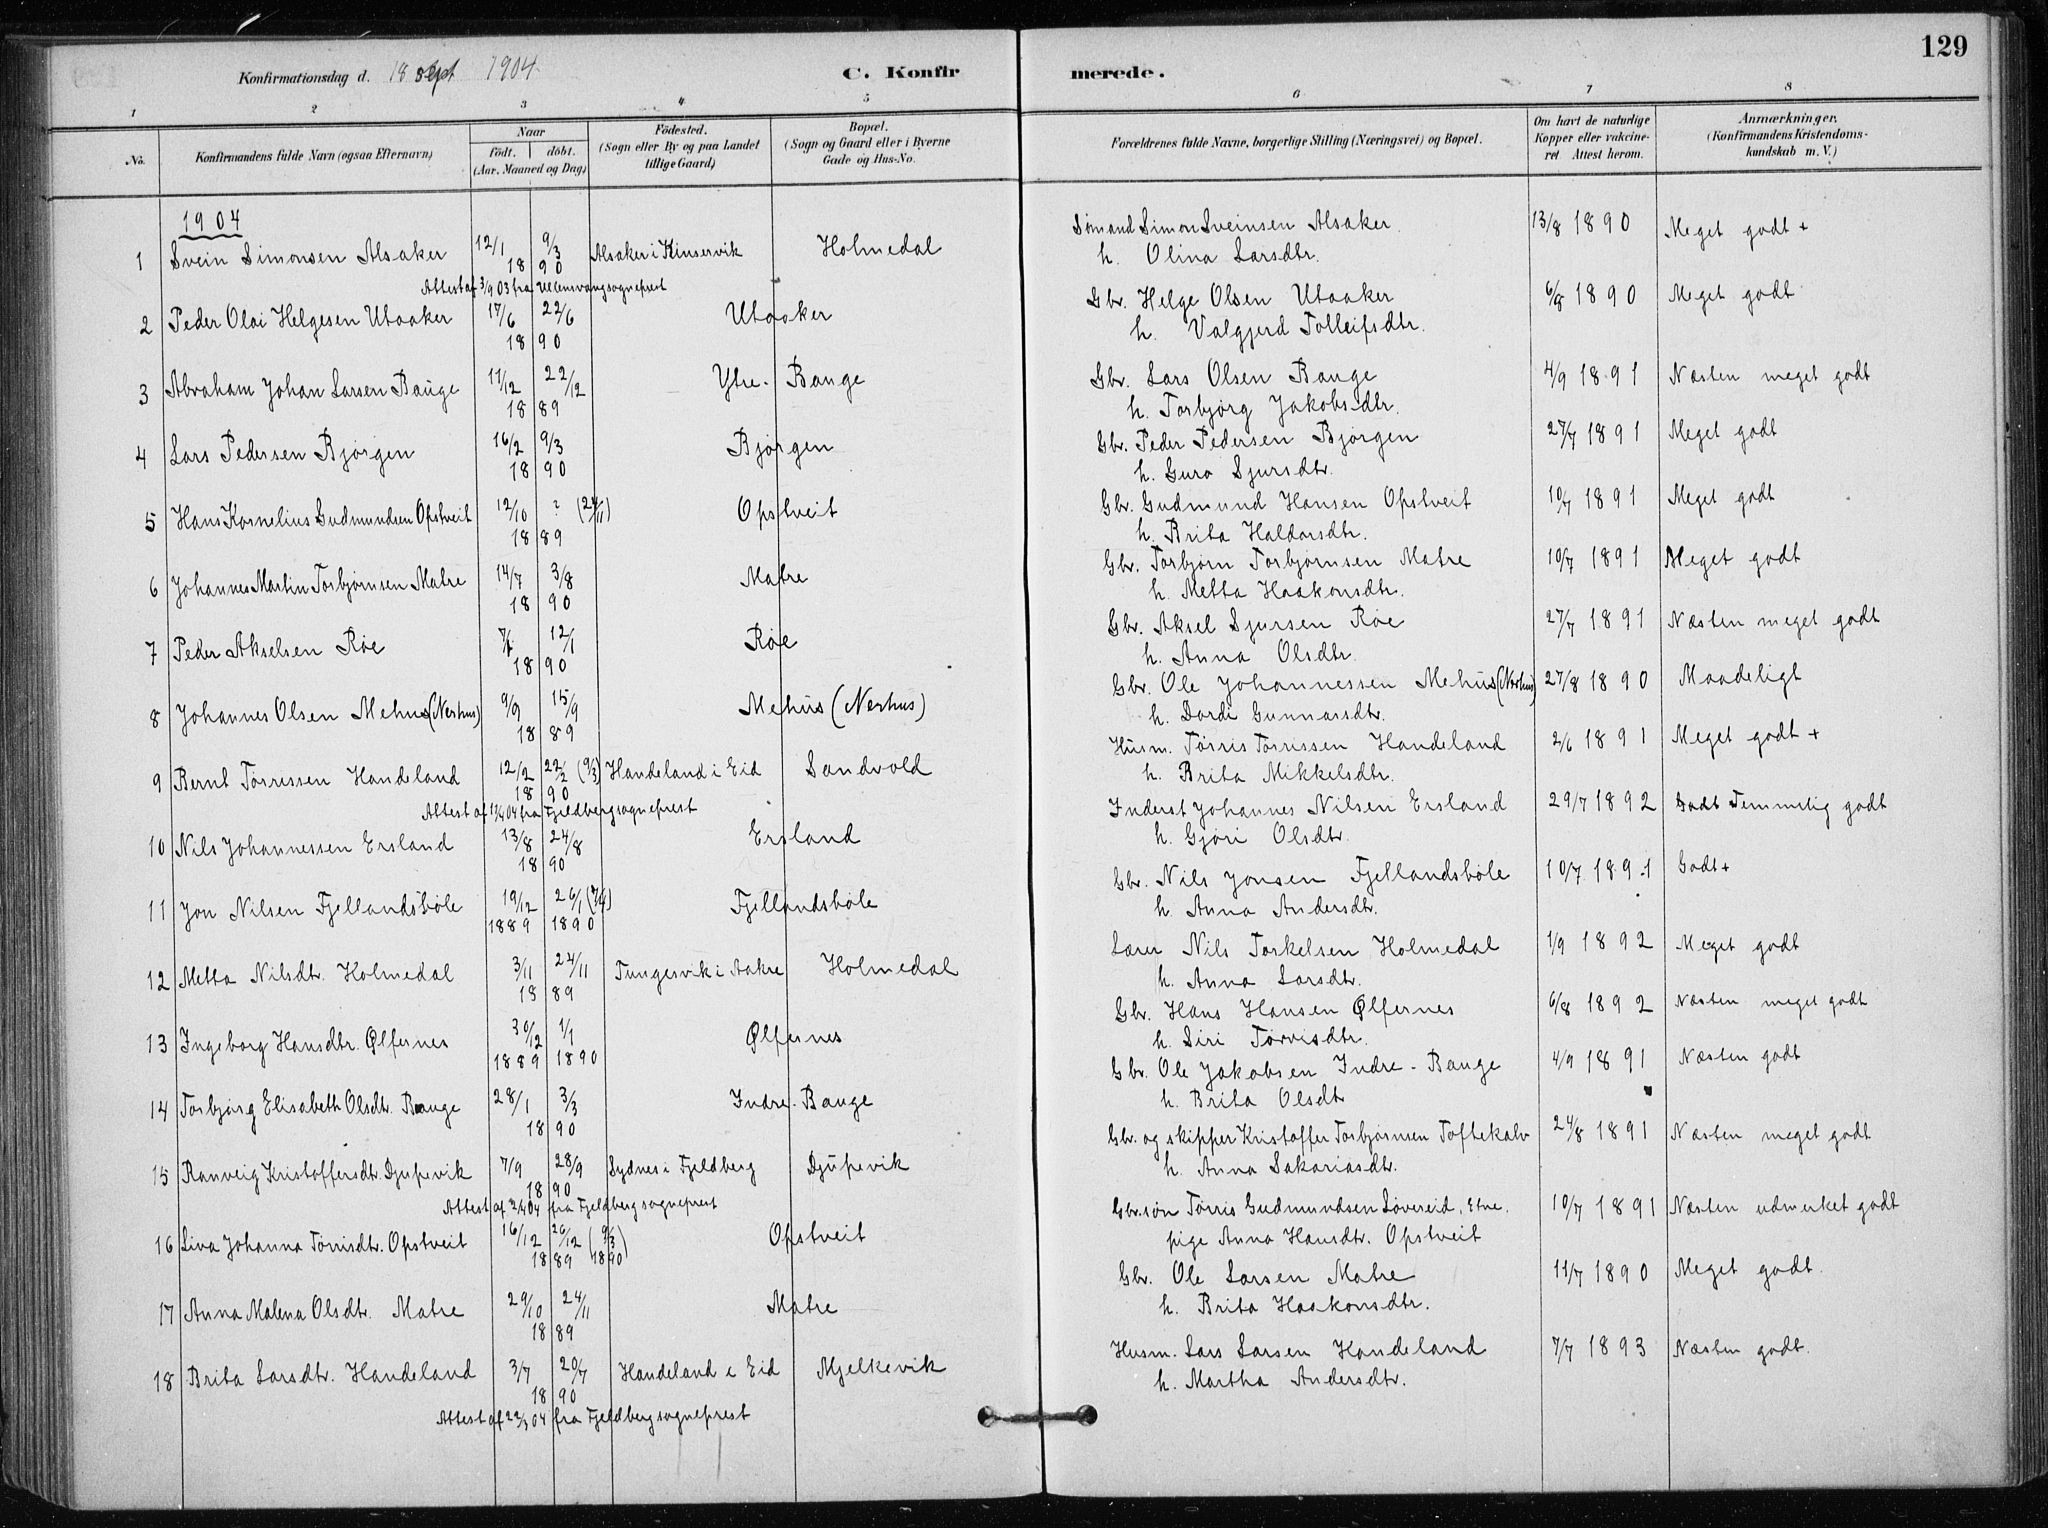 129
Konfirmationsdag d. 18 sept 1904
C. Konfirmerede.
1 2 3 4 5 6 7 8
No. Konfirmandens fulde Navn (ogsaa Efternavn) Naar født. døbt. (Aar, Maaned og Dag) Fødested. (Sogn eller By og paa Landet tillige Gaard) Bopæl. (Sogn og Gaard eller i Byerne Gade og Hus-No. Forældrenes fulde Navne, borgerlige Stilling (Næringsvei) og Bopæl. Om havt de naturlige Kopper eller vakcineret Attest herom. Anmærkninger. (Konfirmandens Kristendomskundskab m. V.)
1904
1 Svein Simonsen Alsaker 12/1 9/3 1890 Alsaker i Kinservik Holmedal Sømand Simon Sveinsen Alsaker 13/8 1890 Meget godt +
h. Olina Larsdtr.
Attest af 3/9 03 fra Ullensvang sogneprest
2 Peder Olai Helgesen Utaaker 17/6 22/6 1890 Utaaker Gbr. Helge Olsen Utaaker 6/8 1890 Meget godt
h. Valgjerd Tolleifsdtr.
3 Abraham Johan Larsen Bauge 11/12 22/12 1889 Ytre-Bauge Gbr. Lars Olsen Bauge 4/9 1891 Næsten meget godt
h. Torbjørg Jakobsdtr.
4 Lars Pedersen Bjørgen 16/2 9/3 1890 Bjørgen Gbr. Peder Pedersen Bjørgen 27/7 1891 Meget godt
h. Guro Sjursdtr.
5 Hans Kornelius Gudmundsen Opstveit 12/10 ? (24/11) 1889 Opstveit Gbr. Gudmund Hansen Opstveit 10/7 1891 Meget godt
h. Brita Haldorsdtr.
6 Johannes Martin Torbjørnsen Matre 14/7 3/8 1890 Matre Gbr. Torbjørn Torbjørnsen Matre 10/7 1891 Meget godt
h. Metta Haakonsdtr.
7 Peder Akselsen Røe 12/1 1890 Røe Gbr. Aksel Sjursen Røe 27/7 1891 Næsten meget godt
h. Anna Olsdtr.
8 Johannes Olsen Mehus (Nerhus) 9/9 15/9 1889 Mehus (Nerhus) Gbr. Ole Johannessen Mehus (Nerhus) 27/8 1890 Maadeligt
h. Dordi Gunnarsdtr.
9 Bernt Tørrissen Handeland 12/2 22/2 (9/3) 1890 Handeland i Eid Sandvold Husm. Tørris Tørrissen Handeland 2/6 1891 Meget godt +
h. Brita Mikkelsdtr.
Attest af 11/4 04 fra Fjeldberg sogneprest
10 Nils Johannessen Ersland 13/8 24/8 1890 Ersland Inderst Johannes Nilsen Ersland 29/7 1892 Godt Temmelig godt
h. Gjøri Olsdtr.
11 Jon Nilsen Fjellandsbøle 19/12 1889 26/1 1890 Fjellandsbøle Gbr. Nils Jonsen Fjellandsbøle 10/7 1891 Godt +
h. Anna Andersdtr.
12 Metta Nilsdtr. Holmedal 3/11 24/11 1889 Tungesvik i Aakre Holmedal Lærer Nils Torkelsen Holmedal 1/9 1892 Meget godt
h. Anna Larsdtr.
13 Ingeborg Hansdtr. Ølfernes 30/12 1889 1/1 1890 Ølfernes Gbr. Hans Hansen Ølfernes 6/8 1892 Næsten meget godt
h. Siri Tørrisdtr.
14 Torbjørg Elisabeth Olsdtr. Bauge 28/1 3/3 1890 Indre-Bauge Gbr. Ole Jakobsen Indre-Bauge 4/9 1891 Næsten godt
h. Brita Olsdtr
15 Ranveig Kristoffersdtr. Djupevik 7/9 28/9 1890 Sydnes i Fjeldberg Djupevik Gbr. og skipper Kristoffer Torbjørnsen Toftekalv 24/8 1891 Næsten meget godt
h. Anna Sakariasdtr.
Attest af 04 fra Fjeldberg sogneprest
16 Liva Johanna Tørrisdtr. Opstveit 16/12 26/12 1889 (9/3 1890) Opstveit Gbr.søn Tørris Gudmundsen Løvereid, Etne. 10/7 1891 Næsten udmerket godt
pige Anna Hansdtr. Opstveit
17 Anna Malena Olsdtr. Matre 29/10 24/11 1889 Matre Gbr. Ole Larsen Matre 11/7 1890 Meget godt.
h. Brita Haakonsdtr.
18 Brita Larsdtr. Handeland 3/7 20/7 1890 Handeland i Eid Mjelkevik Husm. Lars Larsen Handeland 7/7 1893 Næsten godt.
h. Martha Andersdtr.
Attest af 22/3 04 fra Fjeldberg sogneprest